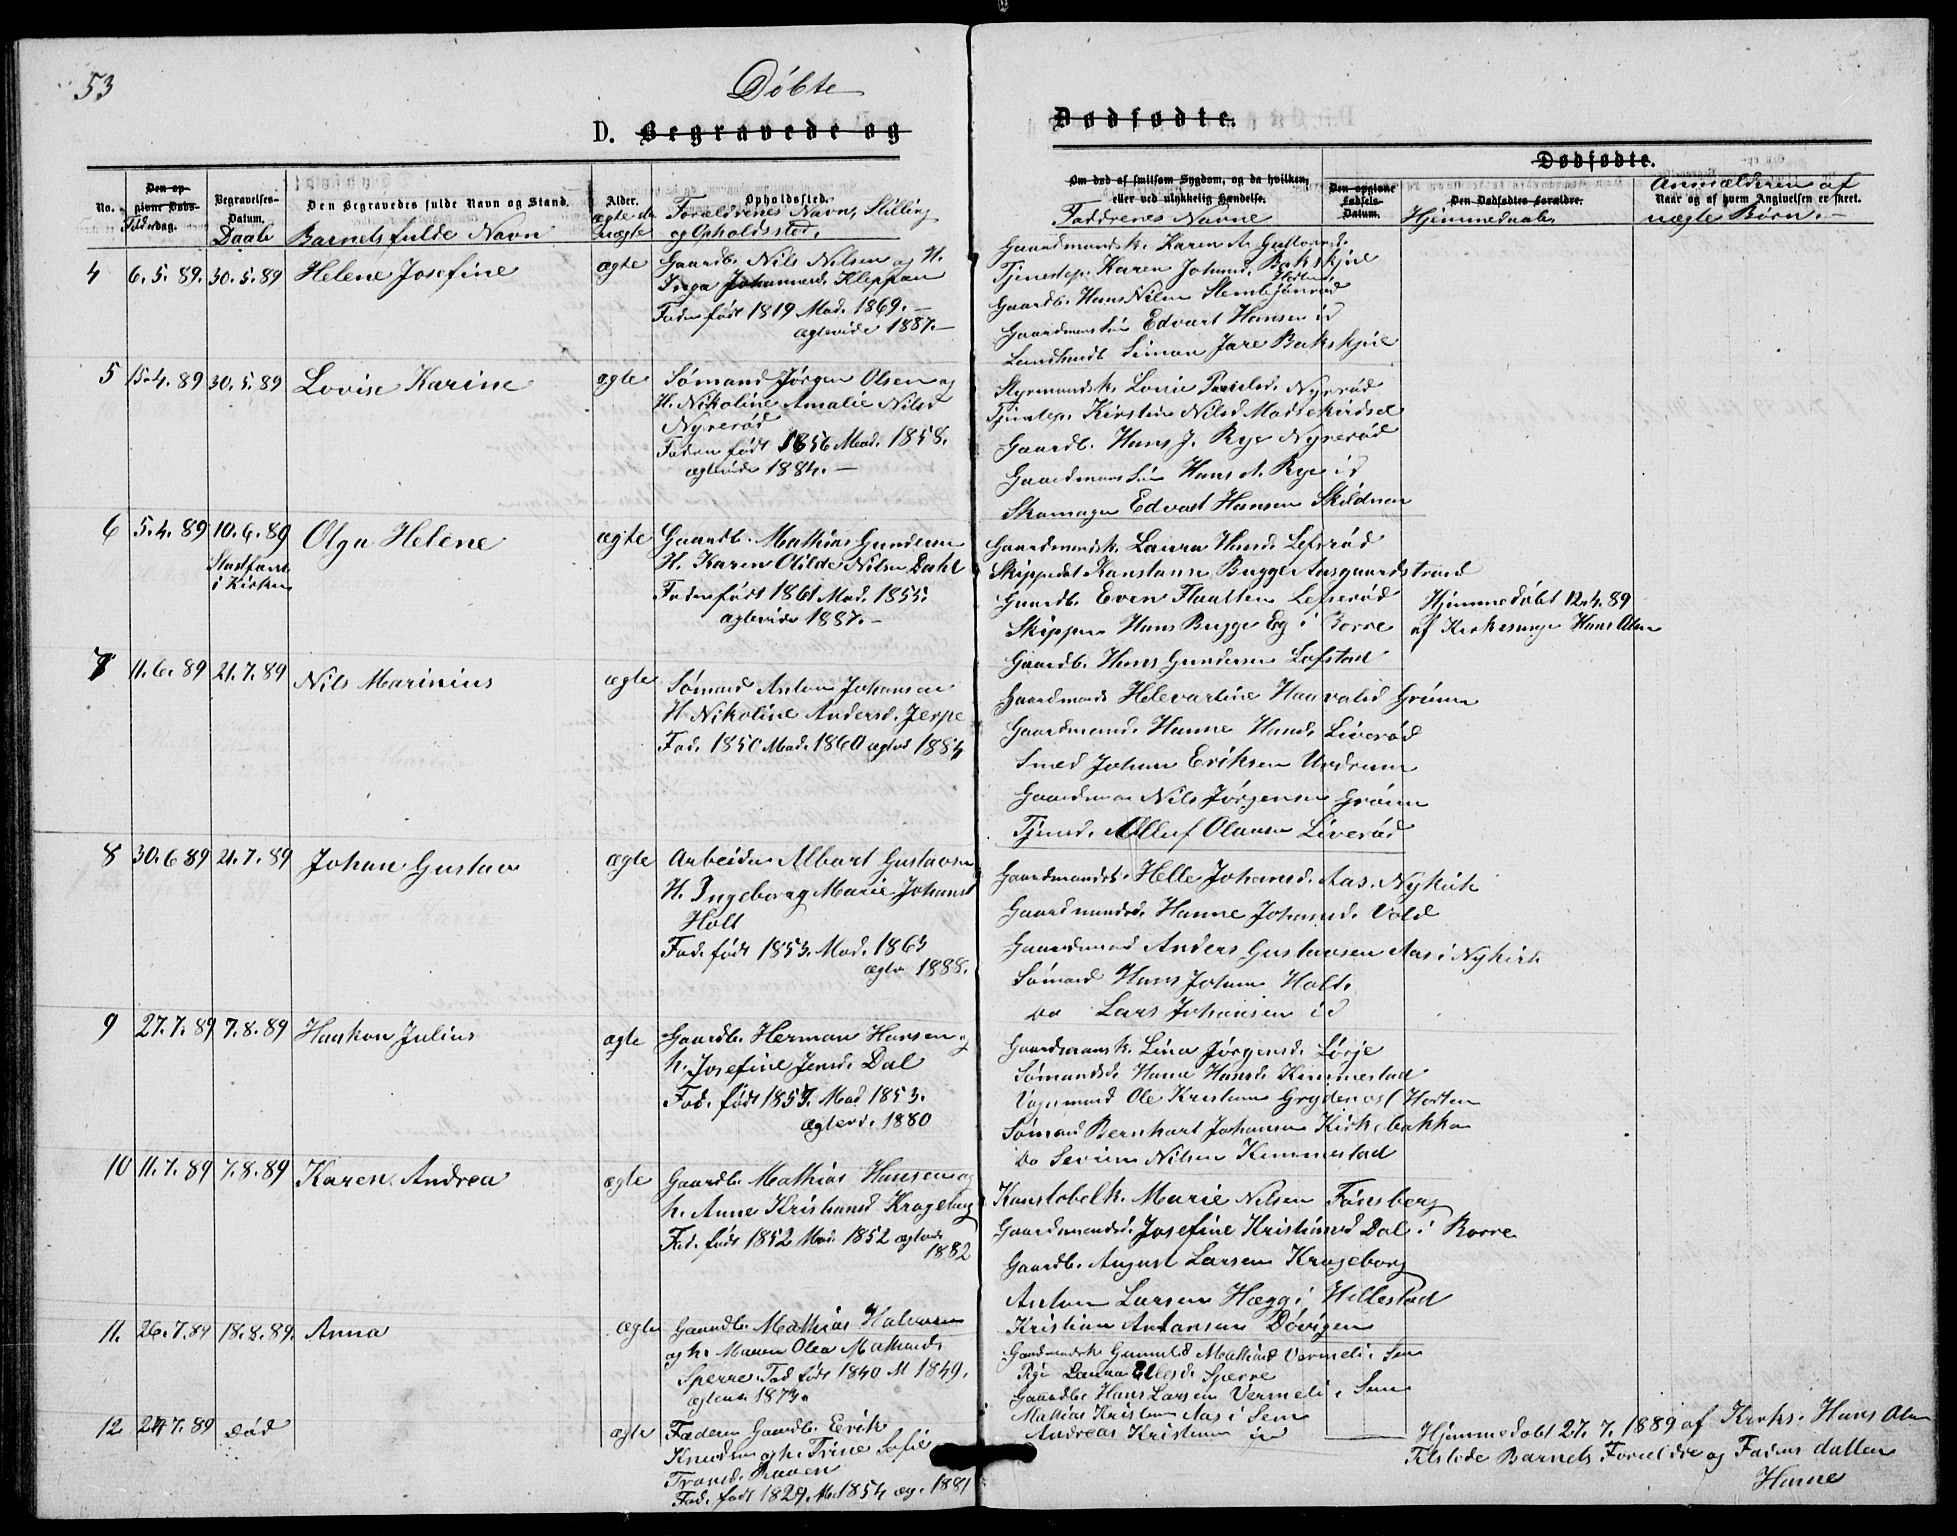 53
Døbte
D. Begravede og
Dødfødte.
No.
Den op-
givne Døds-
dag.
Begravelses-
Datum.
Daab
Den Begravedes fulde Navn og Stand.
Barnets fulde Navn
Alder.
ægte
uægte
Opholdssted.
Forældrenes Navn, Stilling
og Opholdssted.
Om død af smitsom Sygdom, og da hvilken,
eller ved ulykkelig Hændelse.
Faddrenes Navne
Dødfødte.
Den opgivne
Fødsels-
Datum.
Den Dødfødtes Forældre.
Hjemmedaab
Anmælderen af
Naar og af hvem Angivelsen er skeet.
uægte Børn.-
4 6.5.89. 30.5.89 Helene Josefine ægte
Gaardb. Nils Nilsen og H.
Inga Johannesd. Kleppan
Faden født 1819 Mod. 1869.-
ægtevide 1887.-
Gaardmandsk. Karen A.
Tjenestep. Karen Johansd. Bakskjæ
Gaardb. Hans Nilsen
Gaardmanssön Edvart Hansen id
Simon Jare Bakskjæ
5 15.4.89 30.5.89 Lovise Karine ægte
Sømand Jørgen Olsen og
H. Nikoline Amalie Nilsd
Nyrerød
Faden født 1856 Mod. 1858.
1884.-
Styrmandsk. Nyrerød
Tjenestep. Kirstine Nilsd
Gaardb. Hans J. Rye Nyrerød
Gaardmans Sön Hans A. Rye id
Skomager Edvart Hansen
6 5.4.89 10.6.89 Olga Helene ægte
Stadfæst
i Kirken
Gaardb. Mathias Gundersen
H. Karen Otilde Nilsen Dahl
Faden født 1861 Mod. 1855.
ægtevide 1887.-
Gaardmandsk. Laura Hansd. Lefsrød
Skipperdat Konstanse Bugge Aasgaardstrand
Gaardb. Even Lefserød
Skipper Hans Bugge Eg i Borre
Gaardb. Hans Gundersen Lofstad
Hjemmedøbt 12.4.89
af Kirkesanger Hans Olsen
7 11.6.89 21.7.89 Nils Marinius ægte
Sømand Anton Johansen
H Nikoline Andersd. Jerpe
Fad. 1850 Mod. 1860 ægtev 1884
Gaardmands Helevartine Haavalsd Grönn
Gaardmand. Hanne Hansd. Liverød
Smed Johan Eriksen Undrum
Gaardman Nils Jørgensen Grönn
Tjened. Olluf Olausen Liverød
8 30.6 89 21.7.89 Johan Gustav ægte
Arbeider Albert Gustavsen
H. Ingeborg Marie Johansd
Holt
Fad. født 1853. Mod. 1863
ægtv 1888.
Gaardmandsk. Helle Johansd. Aas. Nykirk
Gaardmandsd. Hanne Johansd. Vold
Gaardmand Anders Gustavsen Aas i Nykirk.
Sømand Hans Johan Holt.
Do Lars Johansen id
9 27.7.89 7.8.89 Haakon Julius ægte
Gaardb. Herman Hansen og
h. Josefine Jensd. Dal
Fad. født 1857. Mod 1853.
ægtevi. 1880
Gaardmansk. Lina Jørgensd. Sörje
Sømandsd. Hanne Hansd. Kimmestad
Vognmand Ole Kristian Horten
Sømand Bernhart Johansen Kirkebakken
Do Severin Nilsen Kimmestad
10 11.7.89 7.8.89 Karen Andrea ægte
Gaardb. Mathias Hansen og
h. Anne Kristiansd Krageborg
Fad. født 1852 Mod. 1852 ægtevi
1882
Konstabelk. Marie Nilsen Tönsberg
Gaardmandsd. Josefine Kristiansd Dal i Borre
Gaardb. August Larsen Krageborg
Anton Larsen Hægg i Hillestad
Kristian Antonsen Dövigen
11. 26.7.89 18.8.89. Anna ægte
Gaardb. Mathias Halvorsen
og h. Maren Olea Mathiasd.
Sperre. Fad født 1840 M 1849.
1873.
Gaardmandsk Gunnild Mathiasd Vermeli i Sem
Pige Laura Ellefsd. Sperre
Gaardb. Hans Larsen Vermeli i Sem
Mathias Kristian Aas i Sem
Andreas Kristian id
12. 24.7.89 død ægte
Faderen Gaardb. Erik
Knudsen og h. Trine Sofie
Fad. født 1829. Md 1854 æg. 1881
Hjemmedøbt 27.7.1889 af Kirks. Hans Olsen
Tilstede Barnets Forældre og Faderens datter
Hanne